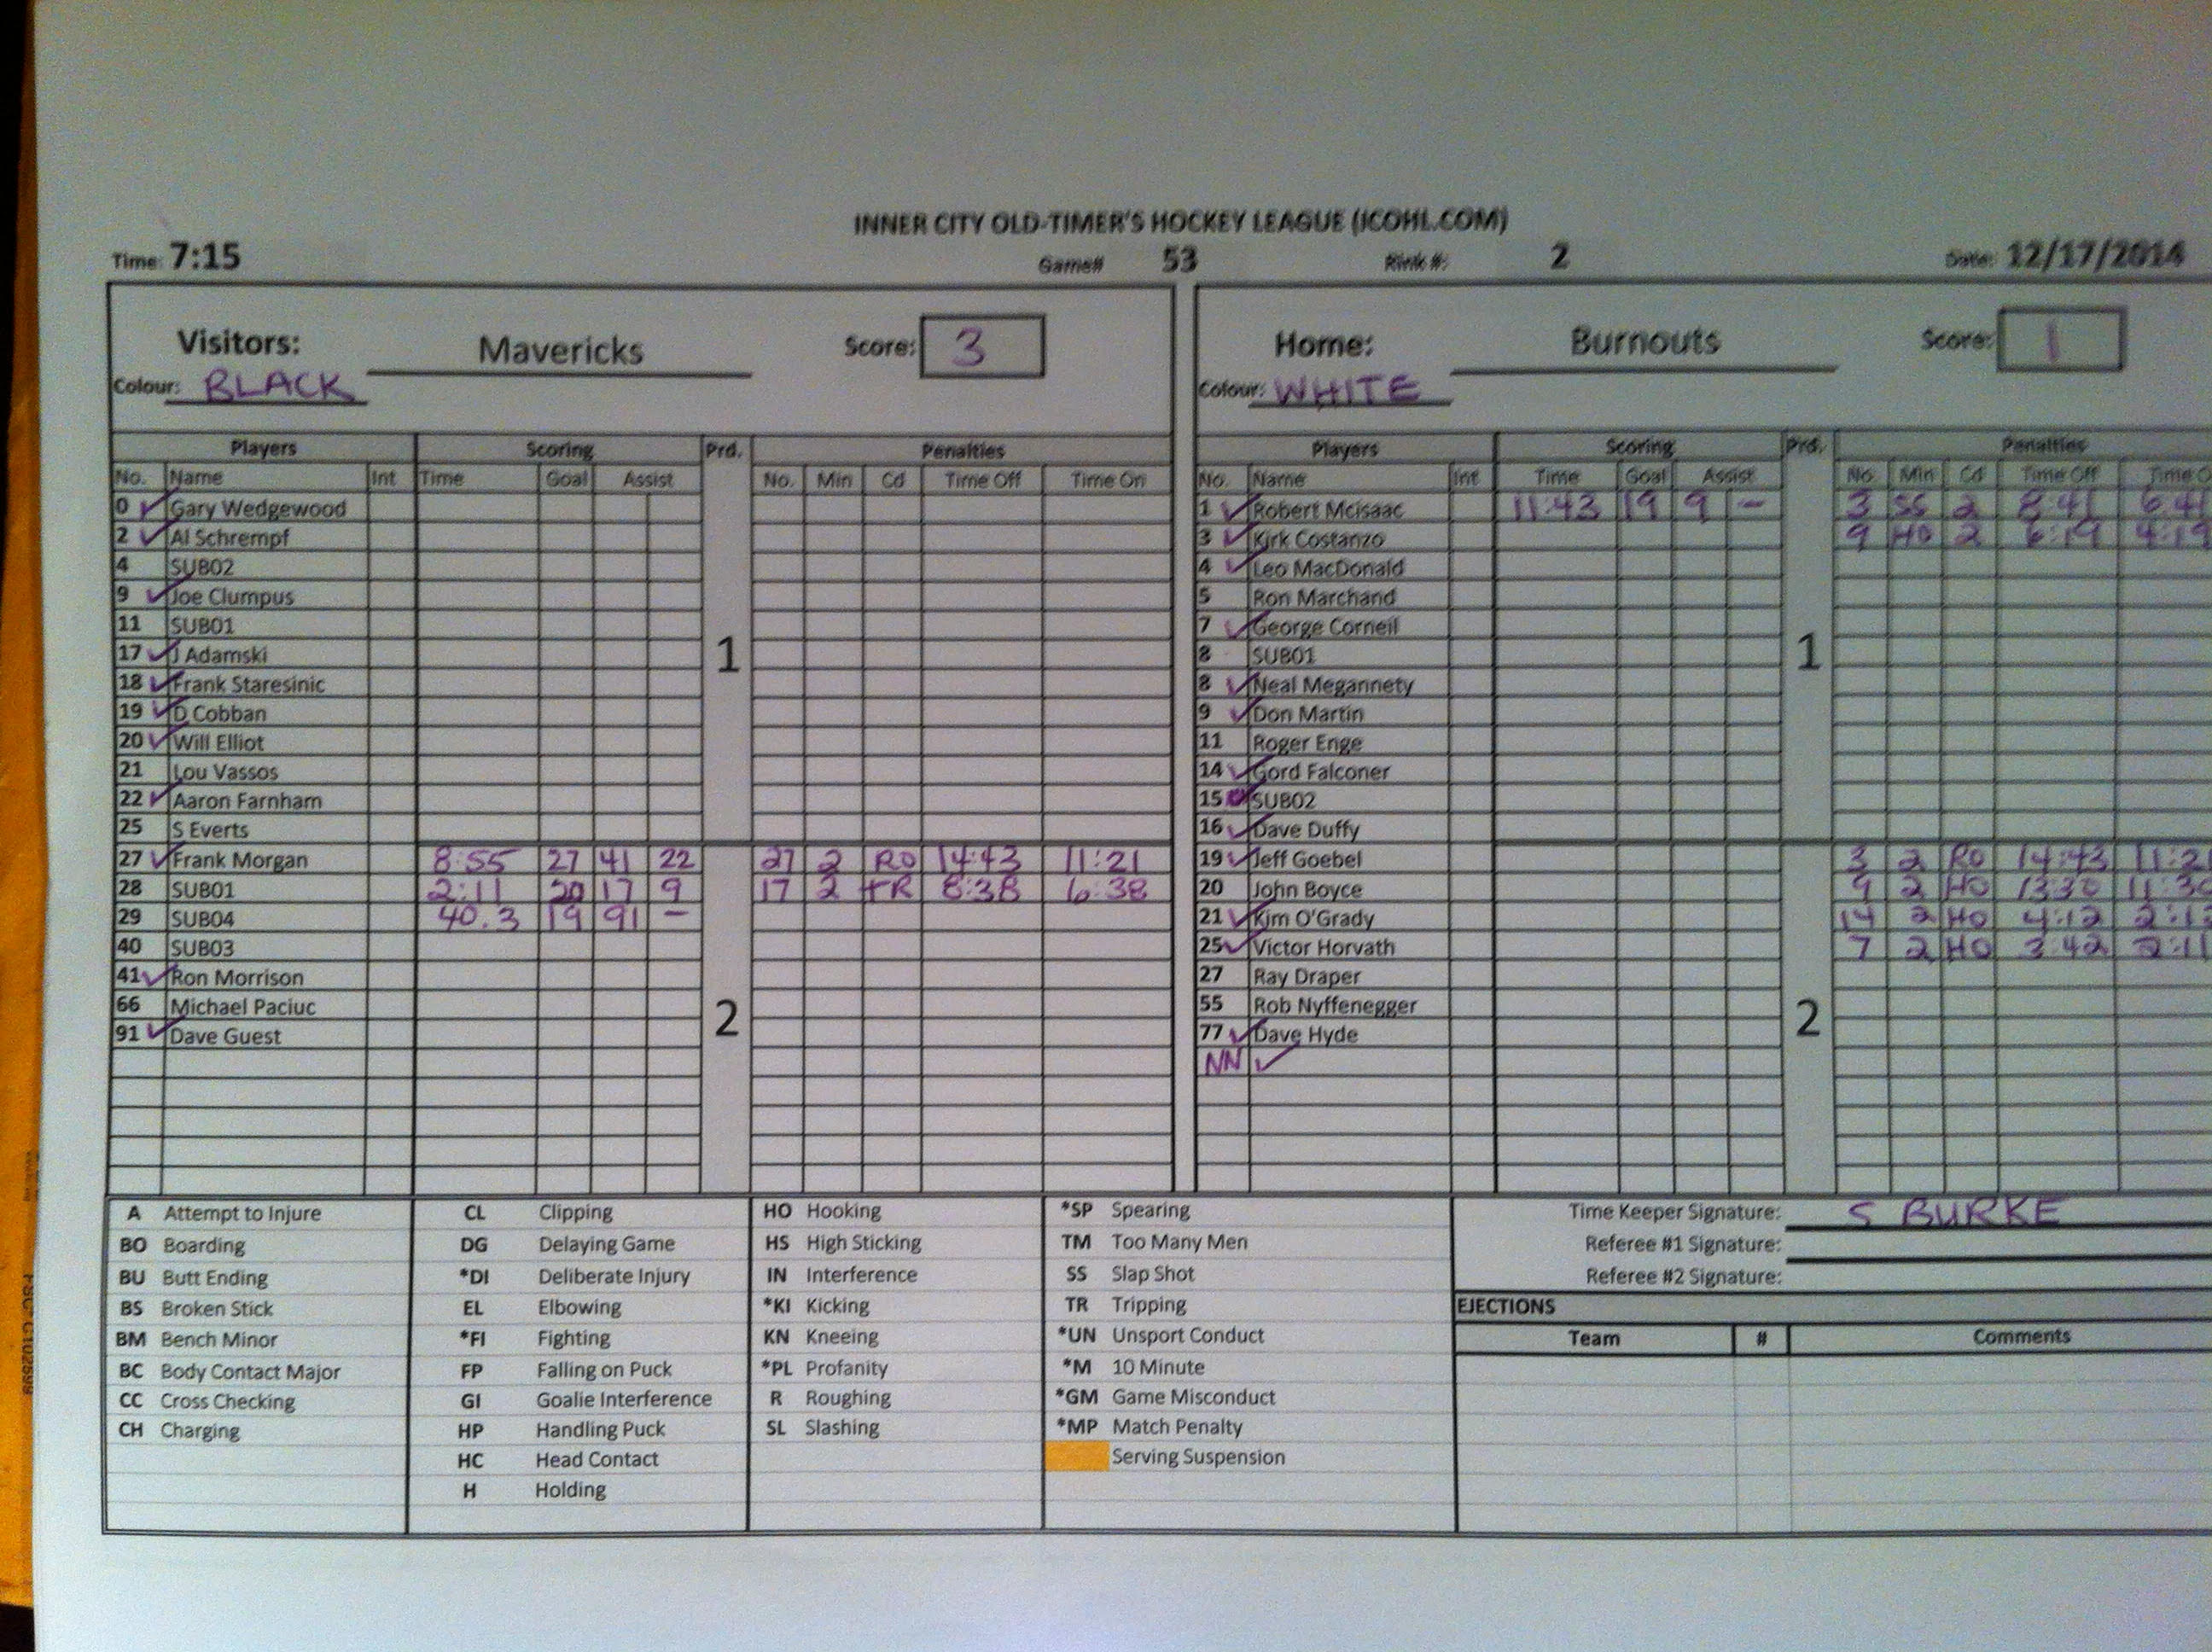 INNER CITY OLD-TIMER'S HOCKEY LEAGUE (ICOHL.COM)
Time: 7:15 Game# 53 Rink #: 2 Date: 12/17/2014
Visitors: Mavericks Score: 3
Colour: BLACK
Players Scoring Prd. Penalties
No. Name Int Time Goal Assist No. Min Cd Time Off Time On
0 ✓ Gary Wedgewood
2 ✓ Al Schrempf
4 SUB02
9 ✓ Joe Clumpus
11 SUB01
17 ✓ J Adamski
1
18 ✓ Frank Staresinic
19 ✓ D Cobban
20 ✓ Will Elliot
21 Lou Vassos
22 ✓ Aaron Farnham
25 S Everts
27 ✓ Frank Morgan 8:55 27 41 22 27 2 RO 14:43 11:21
28 SUB01 2:11 20 17 9 17 2 TR 8:38 6:38
29 SUB04 40.3 19 91 -
40 SUB03
41 ✓ Ron Morrison
66 Michael Paciuc
2
91 ✓ Dave Guest
Home: Burnouts Score: 1
Colour: WHITE
Players Scoring Prd. Penalties
No. Name Int Time Goal Assist No. Min Cd Time Off Time O
1 ✓ Robert Mcisaac 11:43 19 9 - 3 SS 2 8:41 6:41
3 ✓ Kirk Costanzo 9 HO 2 6:19 4:19
4 ✓ Leo MacDonald
5 Ron Marchand
7 ✓ George Corneil
8 SUB01
1
8 ✓ Neal Megannety
9 ✓ Don Martin
11 Roger Enge
14 ✓ Gord Falconer
15 SUB02
16 ✓ Dave Duffy
19 ✓ Jeff Goebel 3 2 RO 14:43 11:2
20 John Boyce 9 2 HO 13:30 11:30
21 ✓ Kim O'Grady 14 2 HO 4:12 2:1
25 ✓ Victor Horvath 7 2 HO 3:42 2:11
27 Ray Draper
55 Rob Nyffenegger
2
77 ✓ Dave Hyde
NN ✓
A Attempt to Injure
BO Boarding
BU Butt Ending
BS Broken Stick
BM Bench Minor
BC Body Contact Major
CC Cross Checking
CH Charging
CL Clipping
DG Delaying Game
*DI Deliberate Injury
EL Elbowing
*FI Fighting
FP Falling on Puck
GI Goalie Interference
HP Handling Puck
HC Head Contact
H Holding
HO Hooking
HS High Sticking
IN Interference
*KI Kicking
KN Kneeing
*PL Profanity
R Roughing
SL Slashing
*SP Spearing
TM Too Many Men
SS Slap Shot
TR Tripping
*UN Unsport Conduct
*M 10 Minute
*GM Game Misconduct
*MP Match Penalty
Serving Suspension
Time Keeper Signature: S BURKE
Referee #1 Signature:
Referee #2 Signature:
EJECTIONS
Team # Comments